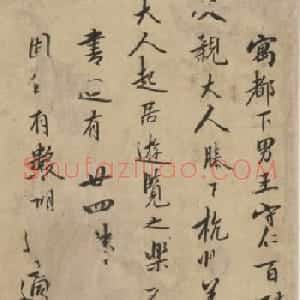 寓都下男王守仁百
父親大人膝下杭州差
大人起居遊覽之樂不
書 有廿四
自有數 適
Shufaziliao.com